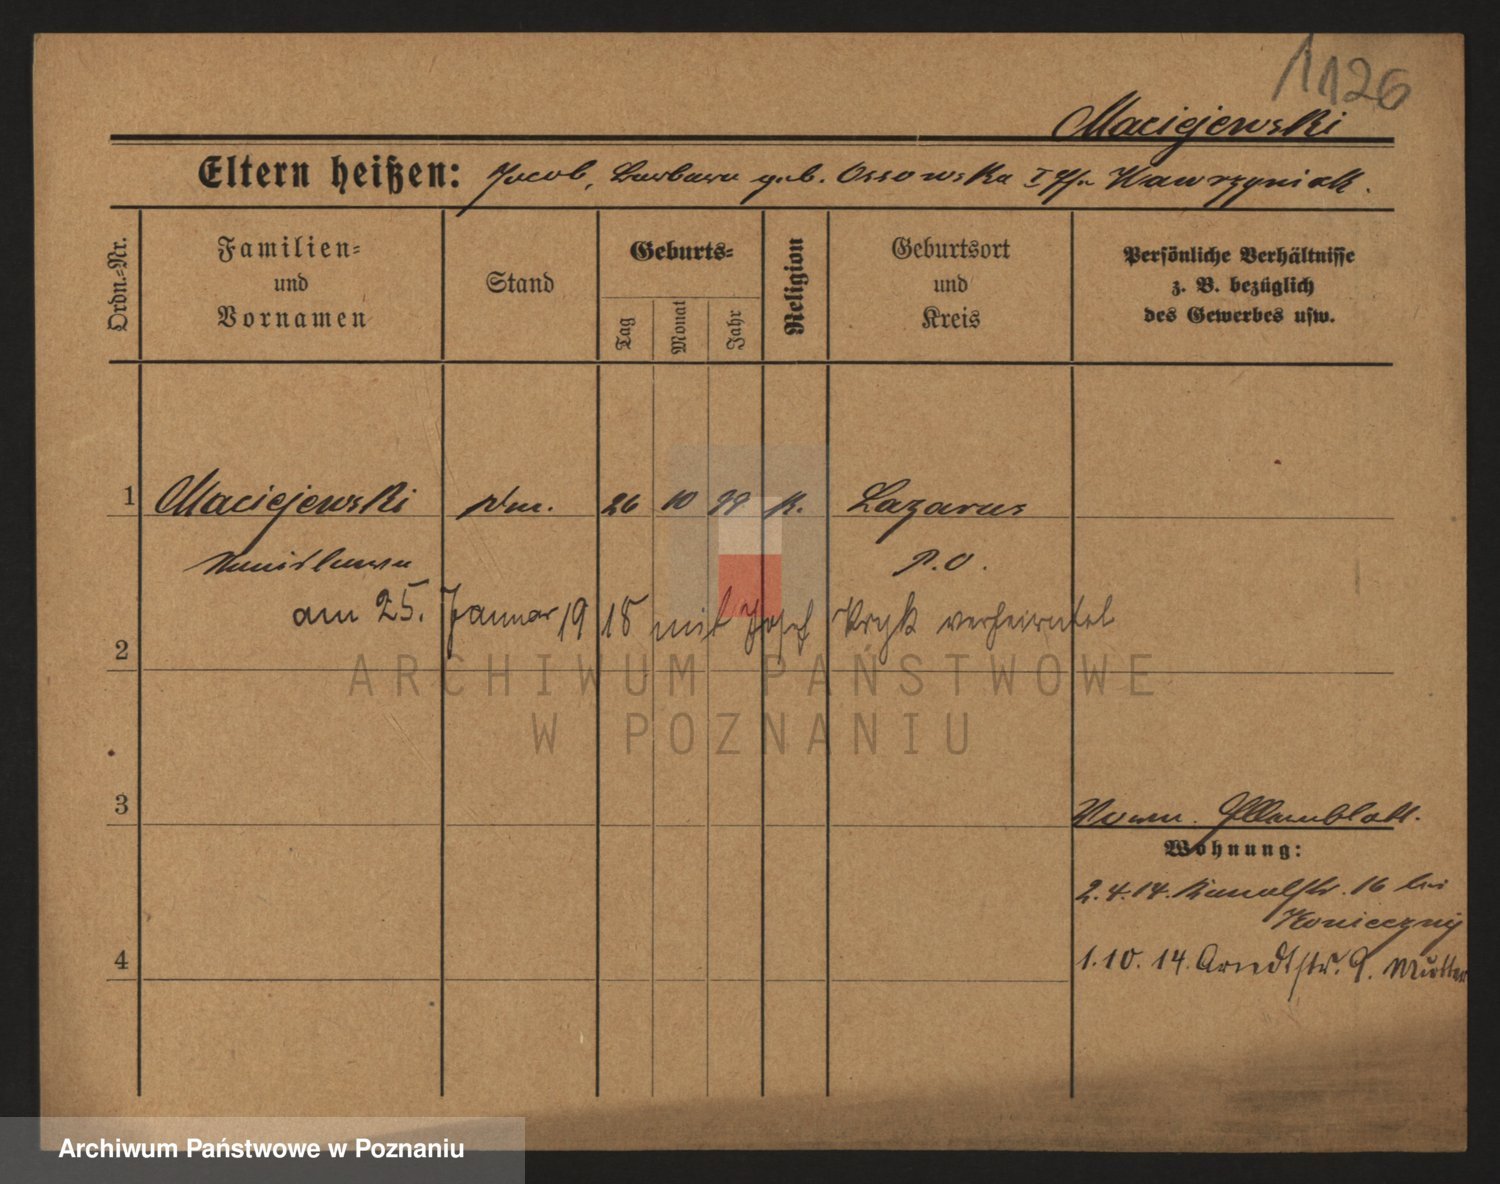 1126
Maciejewski
Eltern heißen: Jacob, Barbara geb. Ossowska I Wawrzyniak.
Ordn.-Nr.
Familien-
und
Vornamen
Stand
Geburts-
Tag
Monat
Jahr
Religion
Geburtsort
und
Kreis
Persönliche Verhältnisse
z. B. bezüglich
des Gewerbes usw.
1 Maciejewski 26 10 99 k. Lazarus
P.O.
am 25. Januar 1918 mit Josef Kryk verheiratet
2
ARCHIWUM PAŃSTWOWE
W POZNANIU
3
Wohnung:
2.4.14. Kanalstr. 16 bei
Konieczny
4
1.10.14. Arndtstr. 9. Mutter
Archiwum Państwowe w Poznaniu